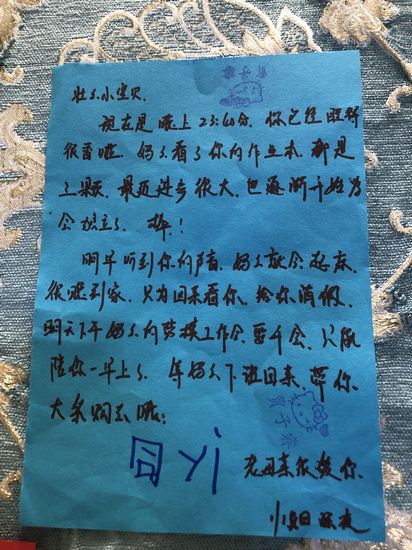 小宝贝
现在是晚上23:40分,你已经睡得
很香啦,妈妈看了你的作业本,都是
三颗,最近进步很大,也逐渐开始
会独立了,棒!
明早听到你的声音,妈妈就会起床
很晚到家,只为回来看你,给你
明天下午妈妈的工作会要开会,只能
陪你一早上了,等妈妈下班回来,带你
大采购去哦;
老母亲很爱你